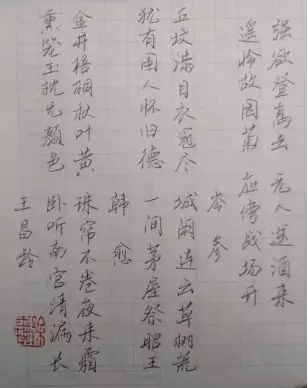 强欲登高去 无人送酒来
遥怜故园菊 应傍战场开
岑参
丘坟满目衣冠尽 城阙连云草树荒
犹有国人怀旧德 一间茅屋祭昭王
韩愈
金井梧桐秋叶黄 珠帘不卷夜来霜
熏笼玉枕无颜色 卧听南宫清漏长
王昌龄